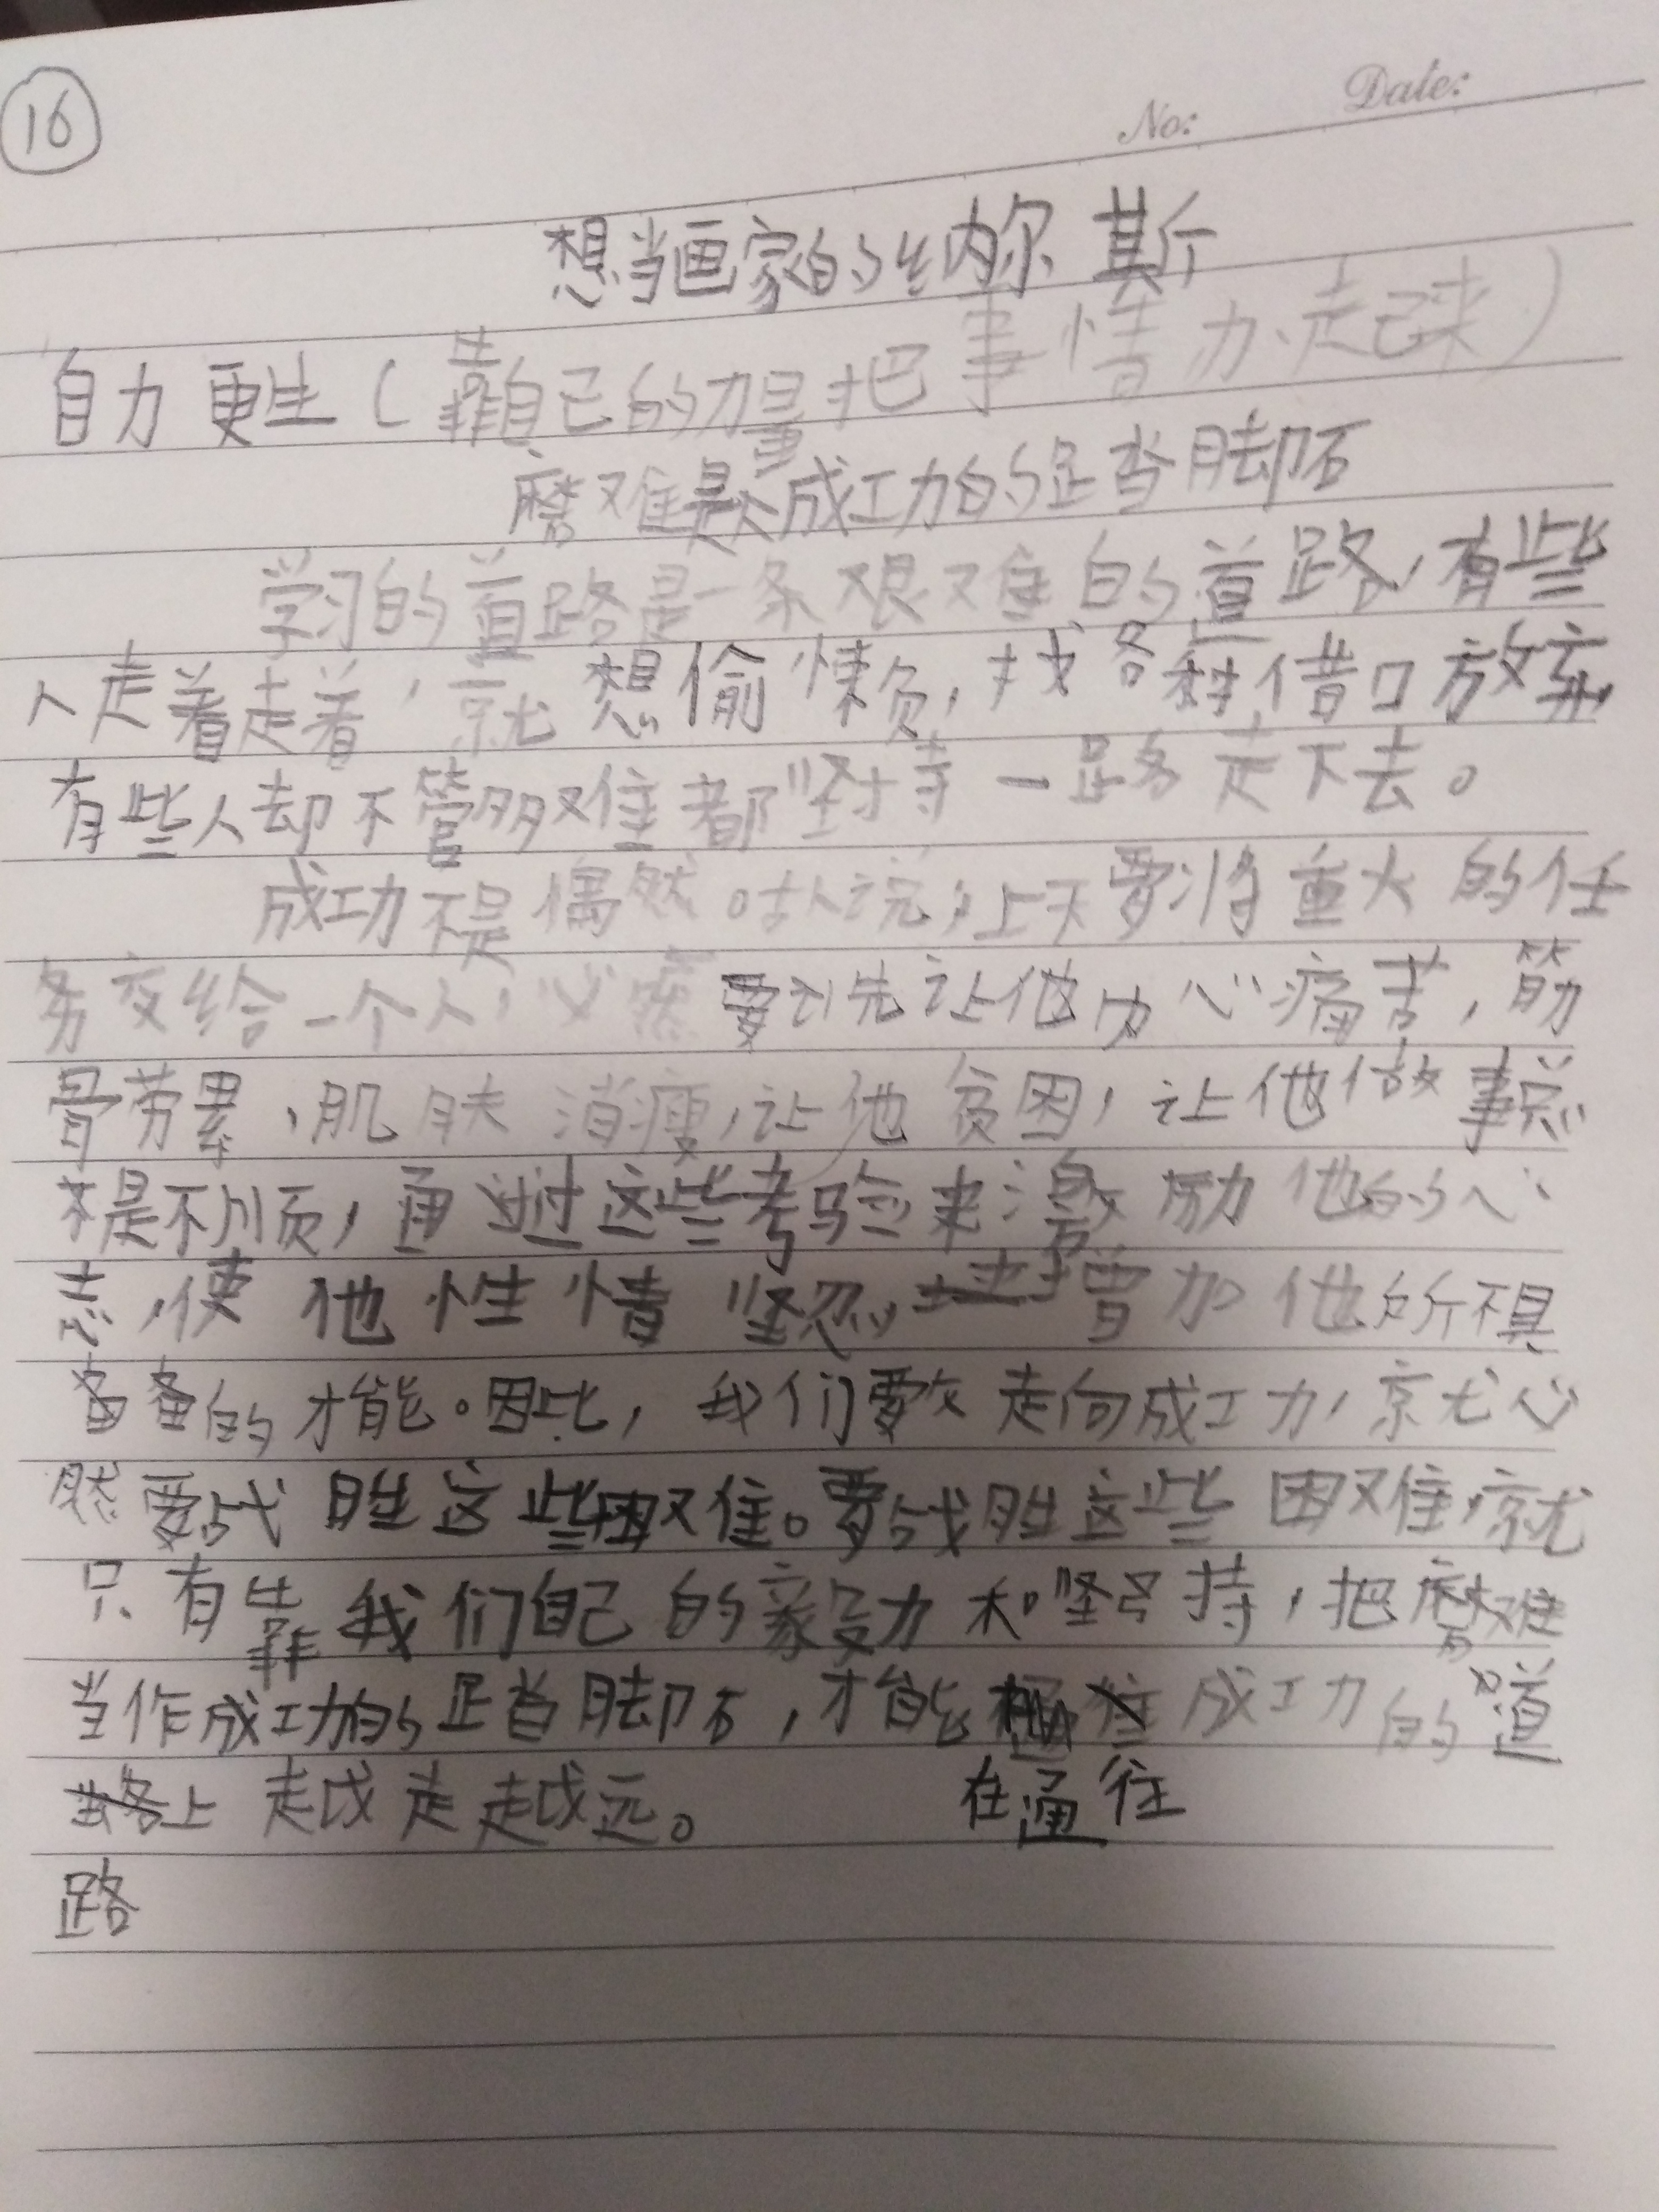 16
No: Date:
想当画家的纳尔其斤
自力更生(靠自己的力量把事情办起来)
磨难是成功的踏脚石
学习的道路是一条艰难的道路,有些
人走着走着,就想偷懒,找各种借口放弃,
有些人却不管多难都坚持一路走下去。
成功不是偶然。古人说,上天要将重大的任
务交给一个人,必然要先让他内心痛苦,筋
骨劳累,肌肤消瘦,让他贫困,让他做事总
是不顺,通过这些考验来激励他的心
志,使他性情坚忍,增加他所不具
备的才能。因此,我们要走向成功,就必
然要战胜这些困难。要战胜这些困难,就
只有靠我们自己的毅力和坚持,把磨难
当作成功的踏脚石,才能成功的道
上越走越远。 在通往
路